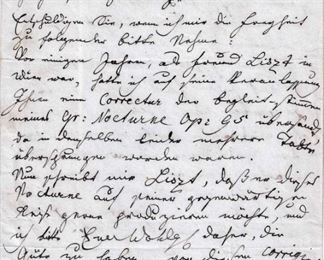 Entschuldigen Sie, wenn ich mir die Freyheit
zu folgender bitte Nehme:
Vor einigen Jahren, als freund Liszt in
Wien war, hatte ich auf seine Veranlassung
Ihnen eine Correctur der begleit-stimmen
meines Gr: Nocturne Op: 95 übersandt
da in denselben leider mehrere Takte
übersprungen worden waren.
Nun schreibt mir Liszt, daß er dieses
Nocturne auf seiner gegenwärtigen
Reise gerne produzieren möchte, und
ich bitte Euer Wohlg. daher, die
Güte zu haben von diesen corrigi